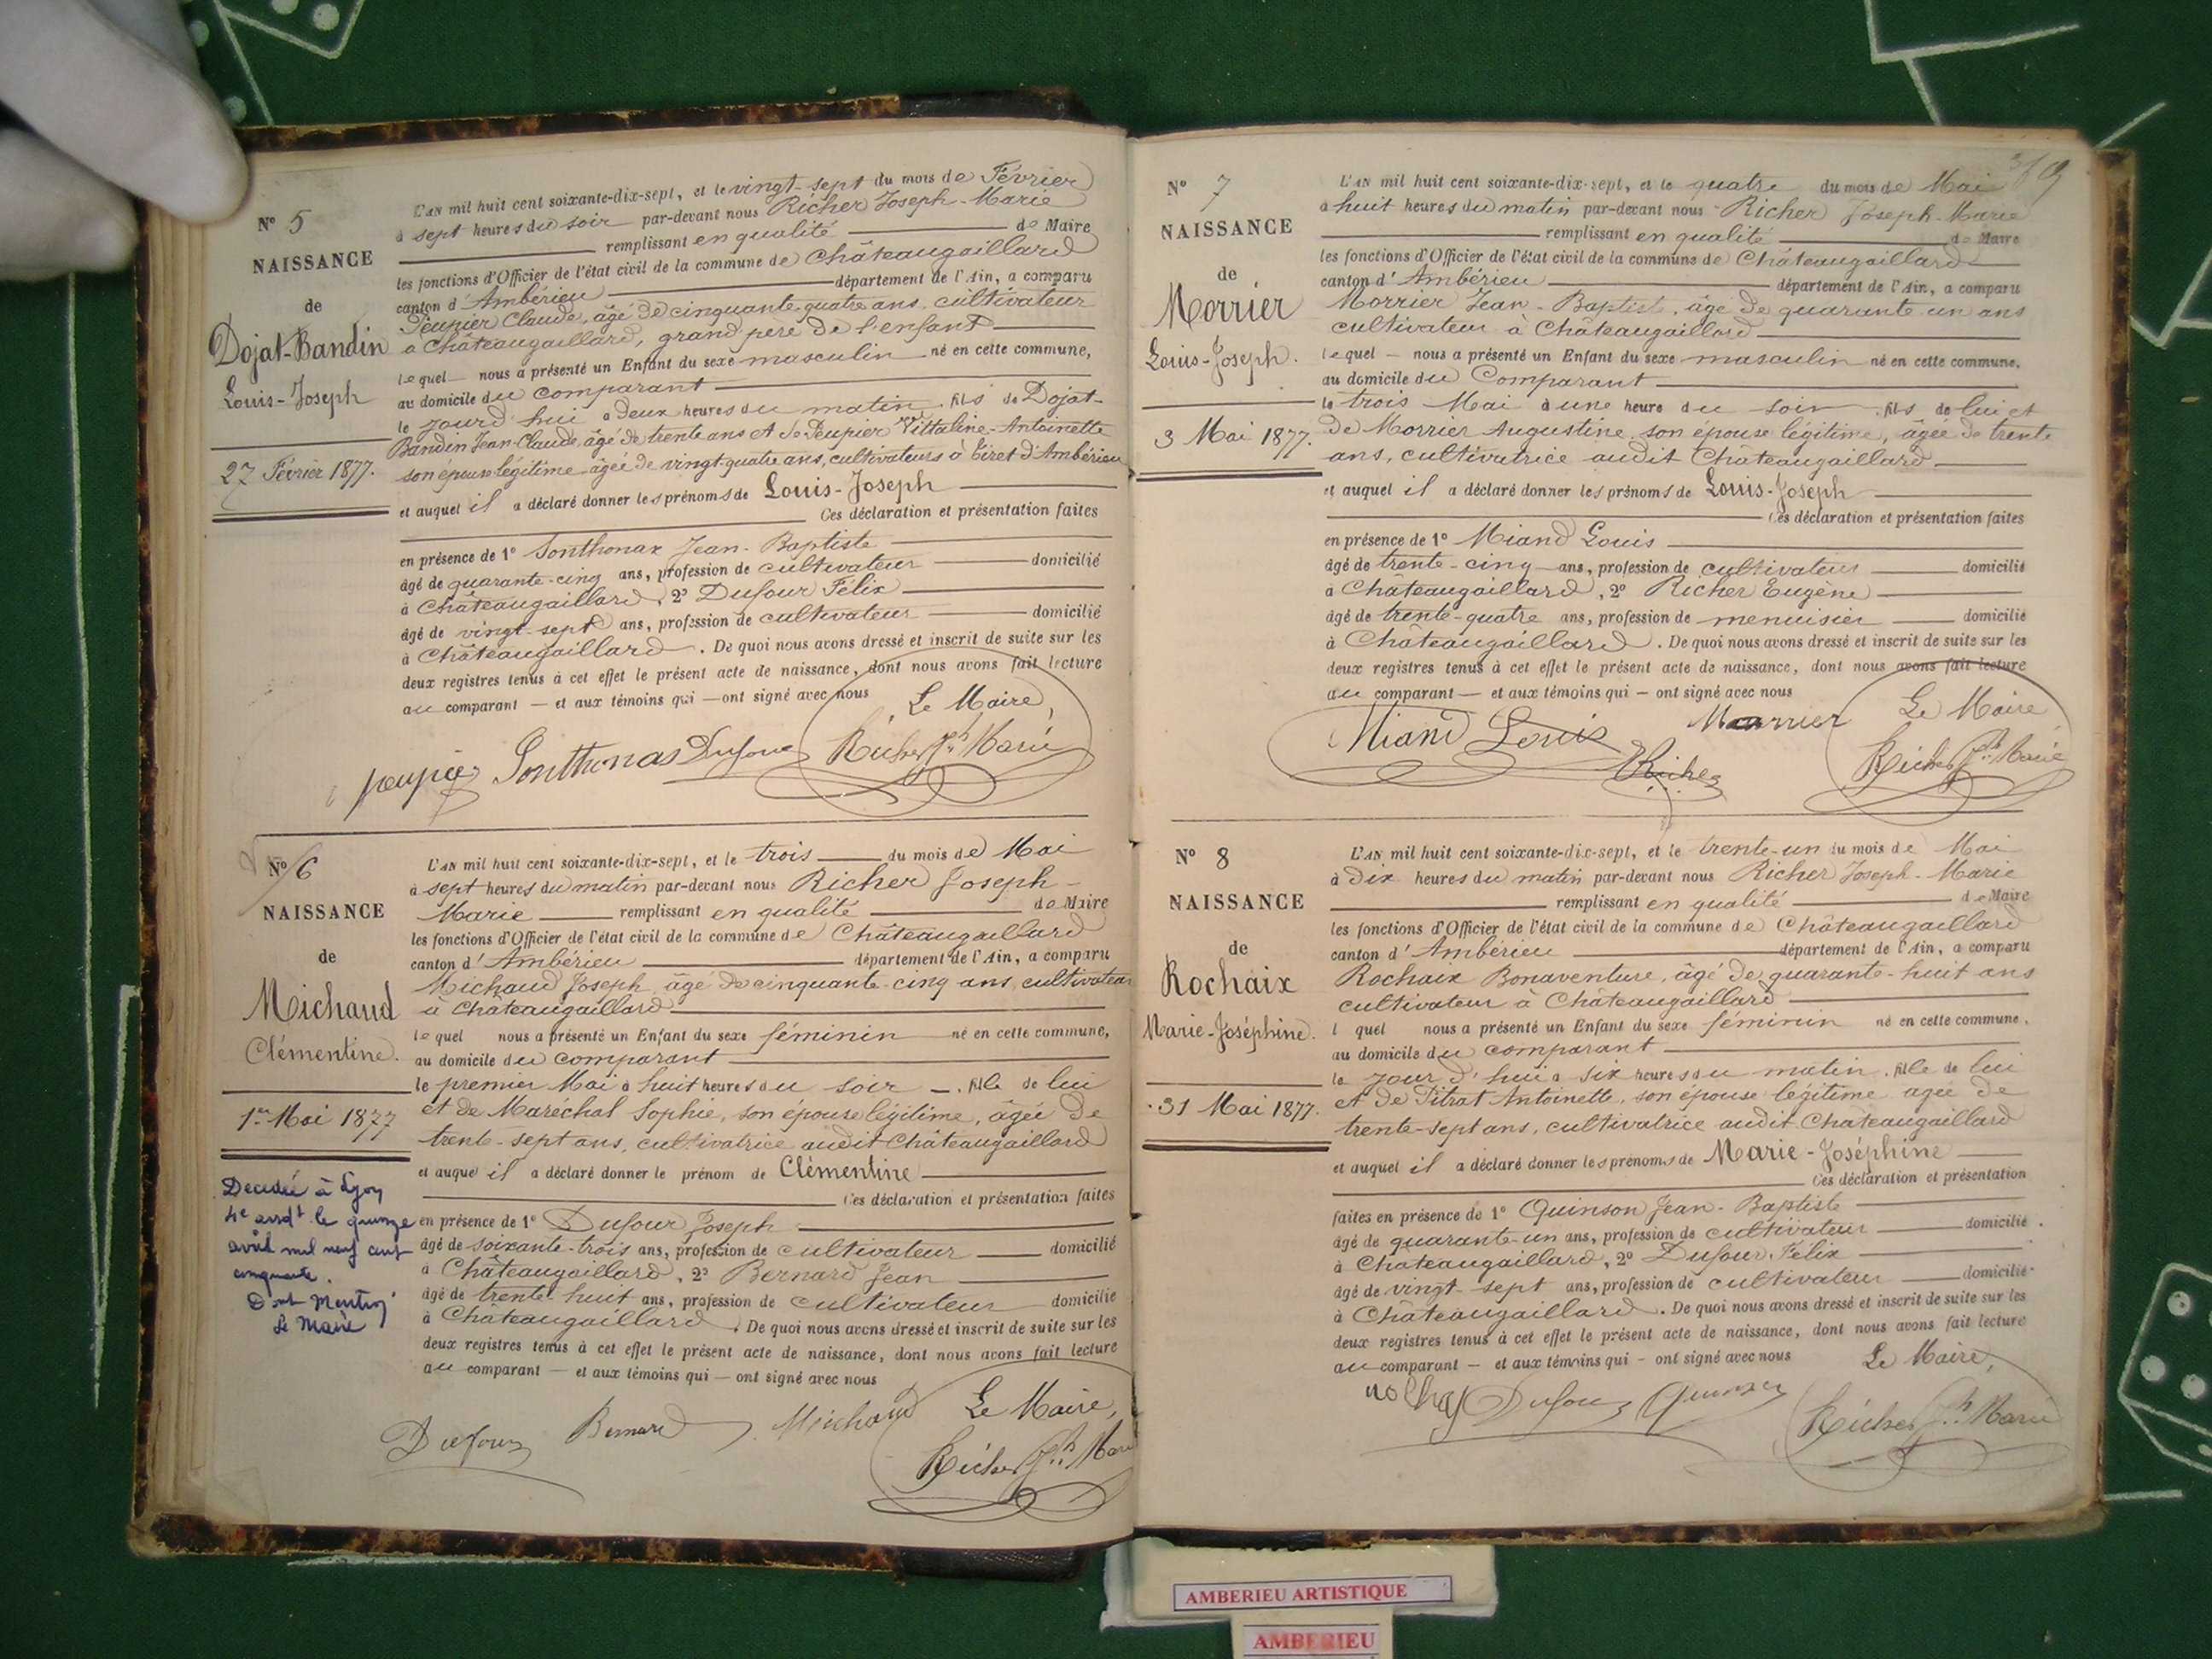 N° 5
NAISSANCE
de
Dojat-Bandin
Louis-Joseph
27 Février 1877.
L'AN mil huit cent soixante-dix-sept, et le vingt-sept du mois de Février
à sept heures du soir par-devant nous Richer Joseph-Marie
remplissant en qualité de Maire
les fonctions d'Officier de l'état civil de la commune de Châteaugaillard
canton d'Ambérieu département de l'Ain, a comparu
Peupier Claude, âgé de cinquante quatre ans, cultivateur
à Châteaugaillard, grand père de l'enfant
lequel nous a présenté un Enfant du sexe masculin né en cette commune,
au domicile du comparant
le jourd'hui à deux heures du matin, fils de Dojat-
Bandin Jean-Claude âgé de trente ans et de Peupier Vittaline-Antoinette
son épouse légitime âgée de vingt-quatre ans, cultivateurs à Tiret d'Ambérieu
et auquel il a déclaré donner les prénoms de Louis-Joseph
Ces déclaration et présentation faites
en présence de 1° Sonthonax Jean-Baptiste
âgé de quarante-cinq ans, profession de cultivateur domicilié
à Châteaugaillard, 2° Dufour Félix
âgé de vingt-sept ans, profession de cultivateur domicilié
à Châteaugaillard. De quoi nous avons dressé et inscrit de suite sur les
deux registres tenus à cet effet le présent acte de naissance, dont nous avons fait lecture
au comparant — et aux témoins qui — ont signé avec nous
Le Maire,
peupier Sonthonas Dufour Richer Jh Marie
N° 6
NAISSANCE
de
Michaud
Clémentine.
1er Mai 1877
Decedée à Lyon
4e arrdt le quinze
avril mil neuf cent
cinquante.
Dont Mention
Le Maire
L'AN mil huit cent soixante-dix-sept, et le trois du mois de Mai
à sept heures du matin par-devant nous Richer Joseph-
Marie remplissant en qualité de Maire
les fonctions d'Officier de l'état civil de la commune de Châteaugaillard
canton d'Ambérieu département de l'Ain, a comparu
Michaud Joseph âgé de cinquante-cinq ans, cultivateur
à Châteaugaillard
lequel nous a présenté un Enfant du sexe féminin né en cette commune,
au domicile du comparant
le premier Mai à huit heures du soir —. fille de lui
et de Maréchal Sophie, son épouse légitime, âgée de
trente-sept ans, cultivatrice audit Châteaugaillard
et auquel il a déclaré donner le prénom de Clémentine
Ces déclaration et présentation faites
en présence de 1° Dufour Joseph
âgé de soixante-trois ans, profession de cultivateur domicilié
à Châteaugaillard, 2° Bernard Jean
âgé de trente-huit ans, profession de cultivateur domicilié
à Châteaugaillard. De quoi nous avons dressé et inscrit de suite sur les
deux registres tenus à cet effet le présent acte de naissance, dont nous avons fait lecture
au comparant — et aux témoins qui — ont signé avec nous
Le Maire,
Dufour Bernard Michaud Richer Jh Marie
N° 7
NAISSANCE
de
Morrier
Louis-Joseph.
3 Mai 1877.
L'AN mil huit cent soixante-dix-sept, et le quatre du mois de Mai
à huit heures du matin par-devant nous Richer Joseph-Marie
remplissant en qualité de Maire
les fonctions d'Officier de l'état civil de la commune de Châteaugaillard
canton d'Ambérieu département de l'Ain, a comparu
Morrier Jean-Baptist, âgé de quarante un ans
cultivateur à Châteaugaillard
lequel — nous a présenté un Enfant du sexe masculin né en cette commune,
au domicile du Comparant
le trois Mai à une heure du soir. fils de lui et
de Morrier Augustine son épouse légitime, âgée de trente
ans, cultivatrice audit Châteaugaillard
et auquel il a déclaré donner les prénoms de Louis-Joseph
Ces déclaration et présentation faites
en présence de 1° Miand Louis
âgé de trente-cinq ans, profession de cultivateur domicilié
à Châteaugaillard, 2° Richer Eugène
âgé de trente-quatre ans, profession de menuisier domicilié
à Châteaugaillard. De quoi nous avons dressé et inscrit de suite sur les
deux registres tenus à cet effet le présent acte de naissance, dont nous avons fait lecture
au comparant — et aux témoins qui — ont signé avec nous
Le Maire
Miand Louis Morrier Richer Richer Jh Marie
N° 8
NAISSANCE
de
Rochaix
Marie-Joséphine.
31 Mai 1877.
L'AN mil huit cent soixante-dix-sept, et le trente-un du mois de Mai
à dix heures du matin par-devant nous Richer Joseph-Marie
remplissant en qualité de Maire
les fonctions d'Officier de l'état civil de la commune de Châteaugaillard
canton d'Ambérieu département de l'Ain, a comparu
Rochaix Bonaventure, âgé de quarante-huit ans
cultivateur à Châteaugaillard
l quel nous a présenté un Enfant du sexe féminin né en cette commune,
au domicile du comparant
le jour d'hui à six heures du matin. fille de lui
et de Pitrat Antoinette, son épouse légitime agée de
trente-sept ans, cultivatrice audit Châteaugaillard
et auquel il a déclaré donner les prénoms de Marie-Joséphine
Ces déclaration et présentation
faites en présence de 1° Quinson Jean-Baptiste
âgé de quarante-un ans, profession de cultivateur domicilié
à Châteaugaillard, 2° Dufour Félix
âgé de vingt-sept ans, profession de cultivateur domicilié
à Châteaugaillard. De quoi nous avons dressé et inscrit de suite sur les
deux registres tenus à cet effet le présent acte de naissance, dont nous avons fait lecture
au comparant — et aux témoins qui — ont signé avec nous
Le Maire,
Dufour Quinson Richer Jh Marie
AMBERIEU ARTISTIQUE
AMBERIEU